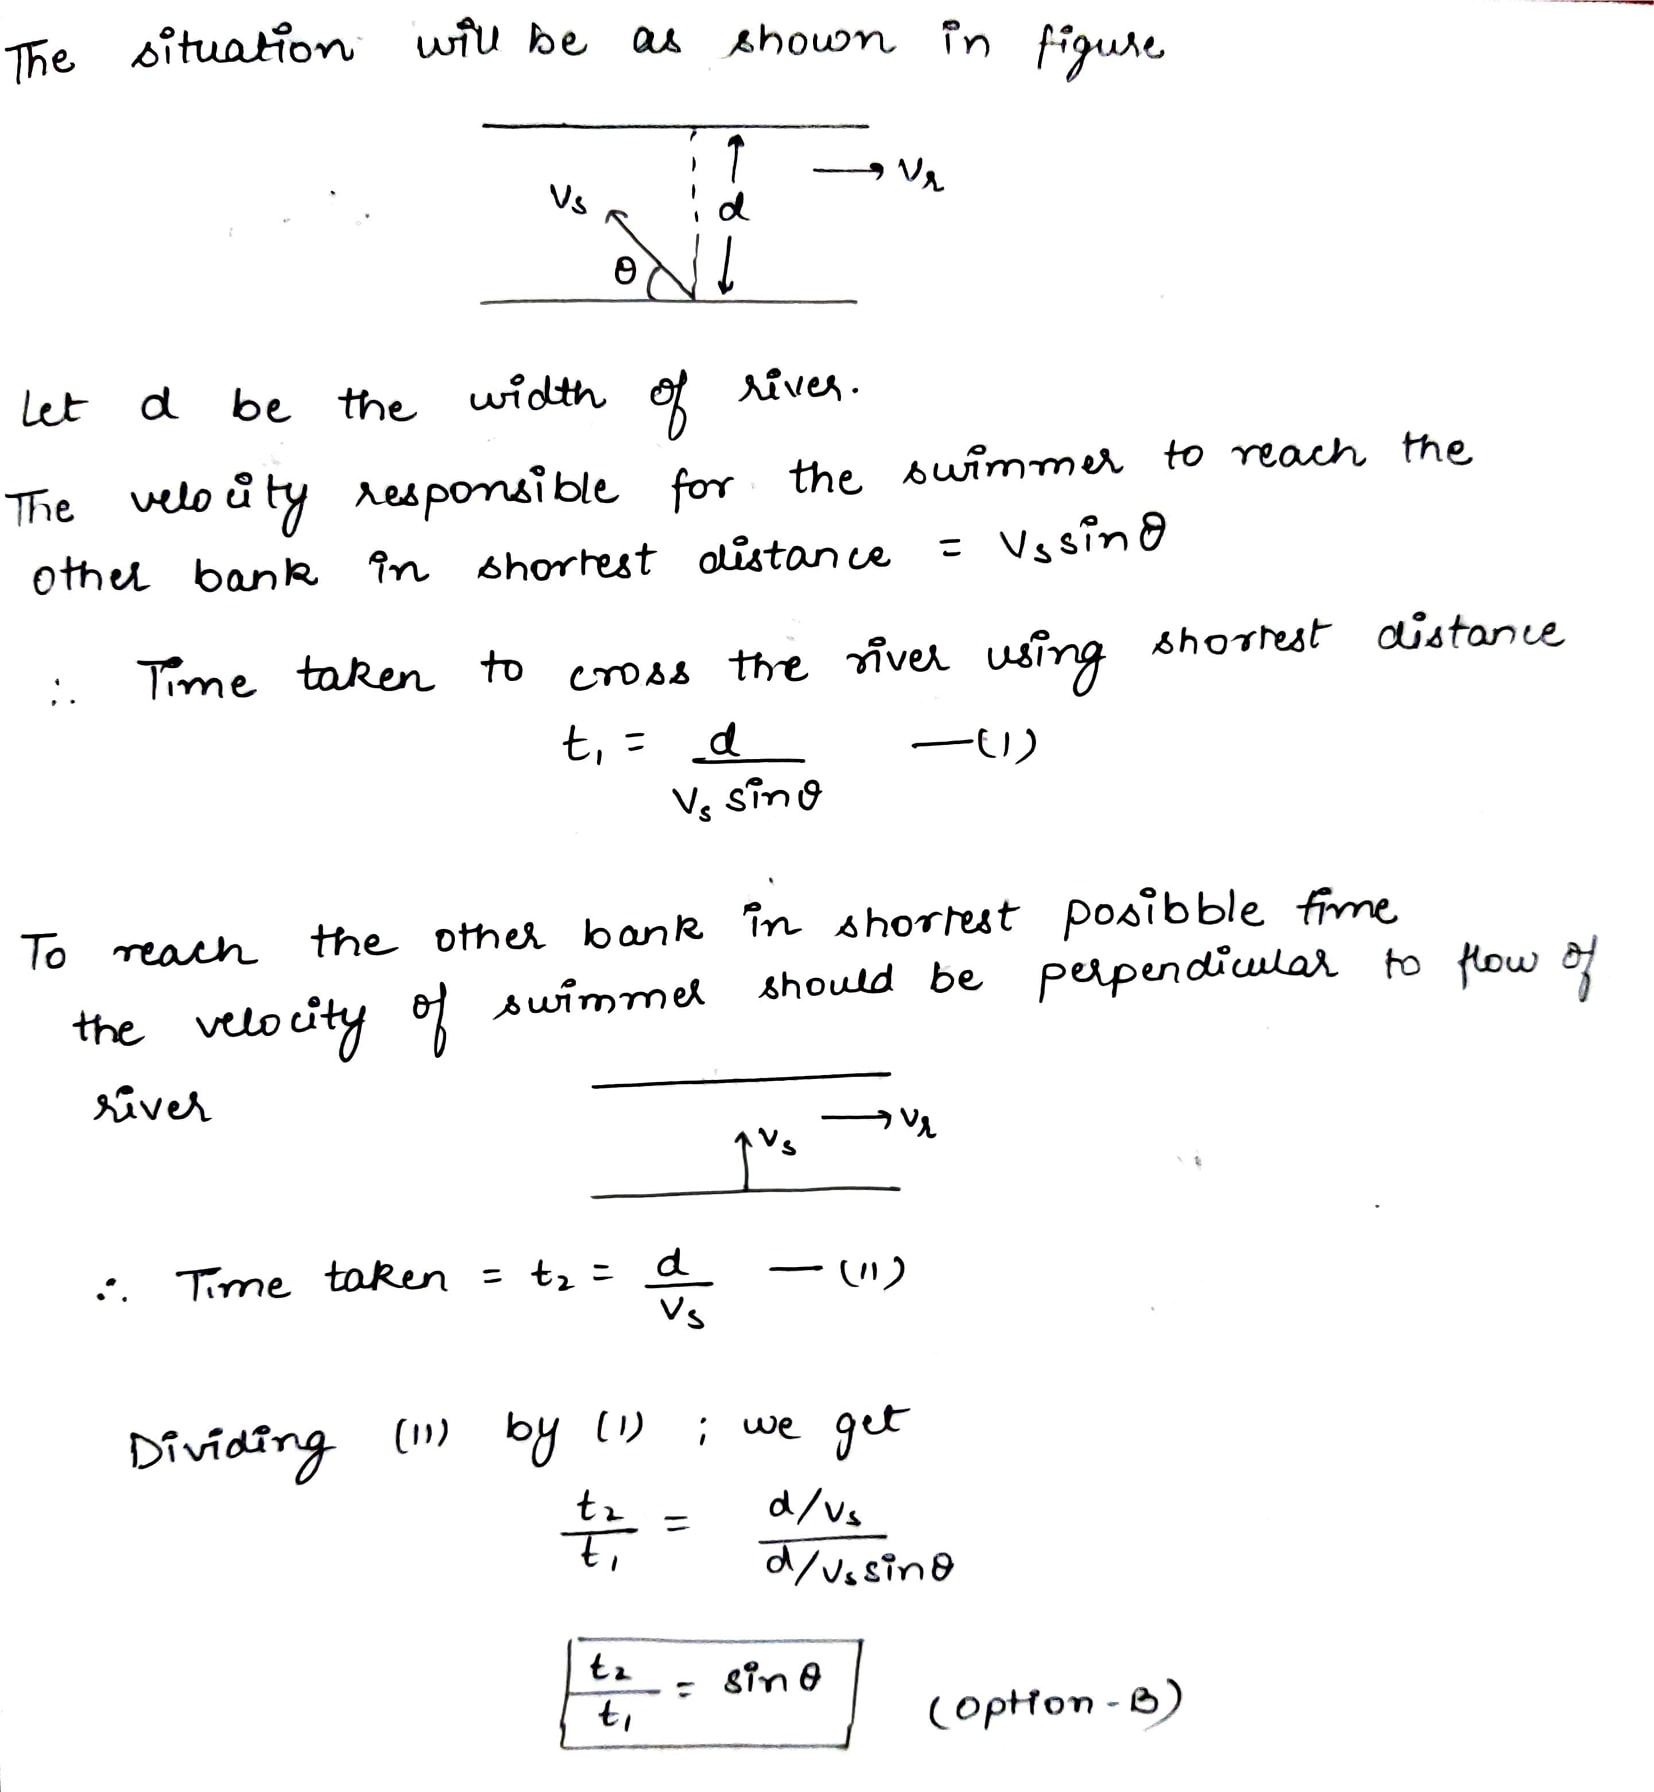 The situation will be as shown in figure
Vr
Vs
d
θ
Let d be the width of river.
The velocity responsible for the swimmer to reach the
other bank in shortest distance = Vs sinθ
∴ Time taken to cross the river using shortest distance
t₁ = d / Vs sinθ —(I)
To reach the other bank in shortest posibble time
the velocity of swimmer should be perpendicular to flow of
river
Vr
Vs
∴ Time taken = t₂ = d / Vs —(II)
Dividing (II) by (I) ; we get
t₂/t₁ = d/Vs / d/Vs sinθ
t₂/t₁ = sinθ (option-B)